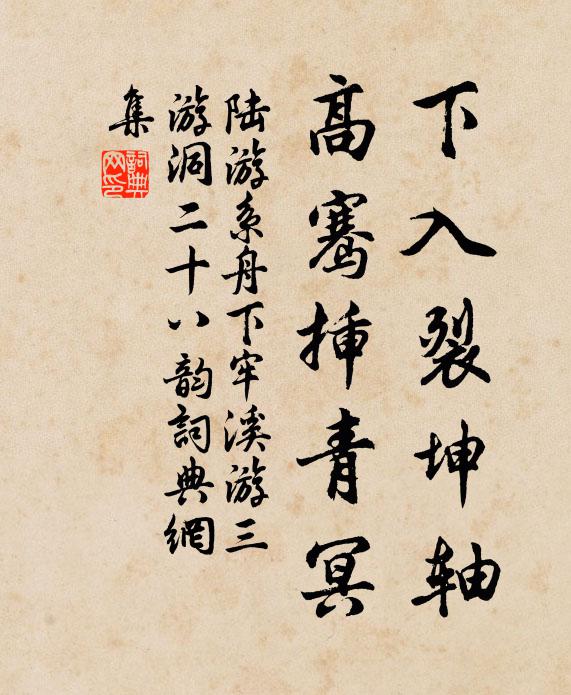 下入裂坤轴
高骞插青冥
陆游系舟下牢溪游三
游洞二十八韵詞典網
集
詞典
网印